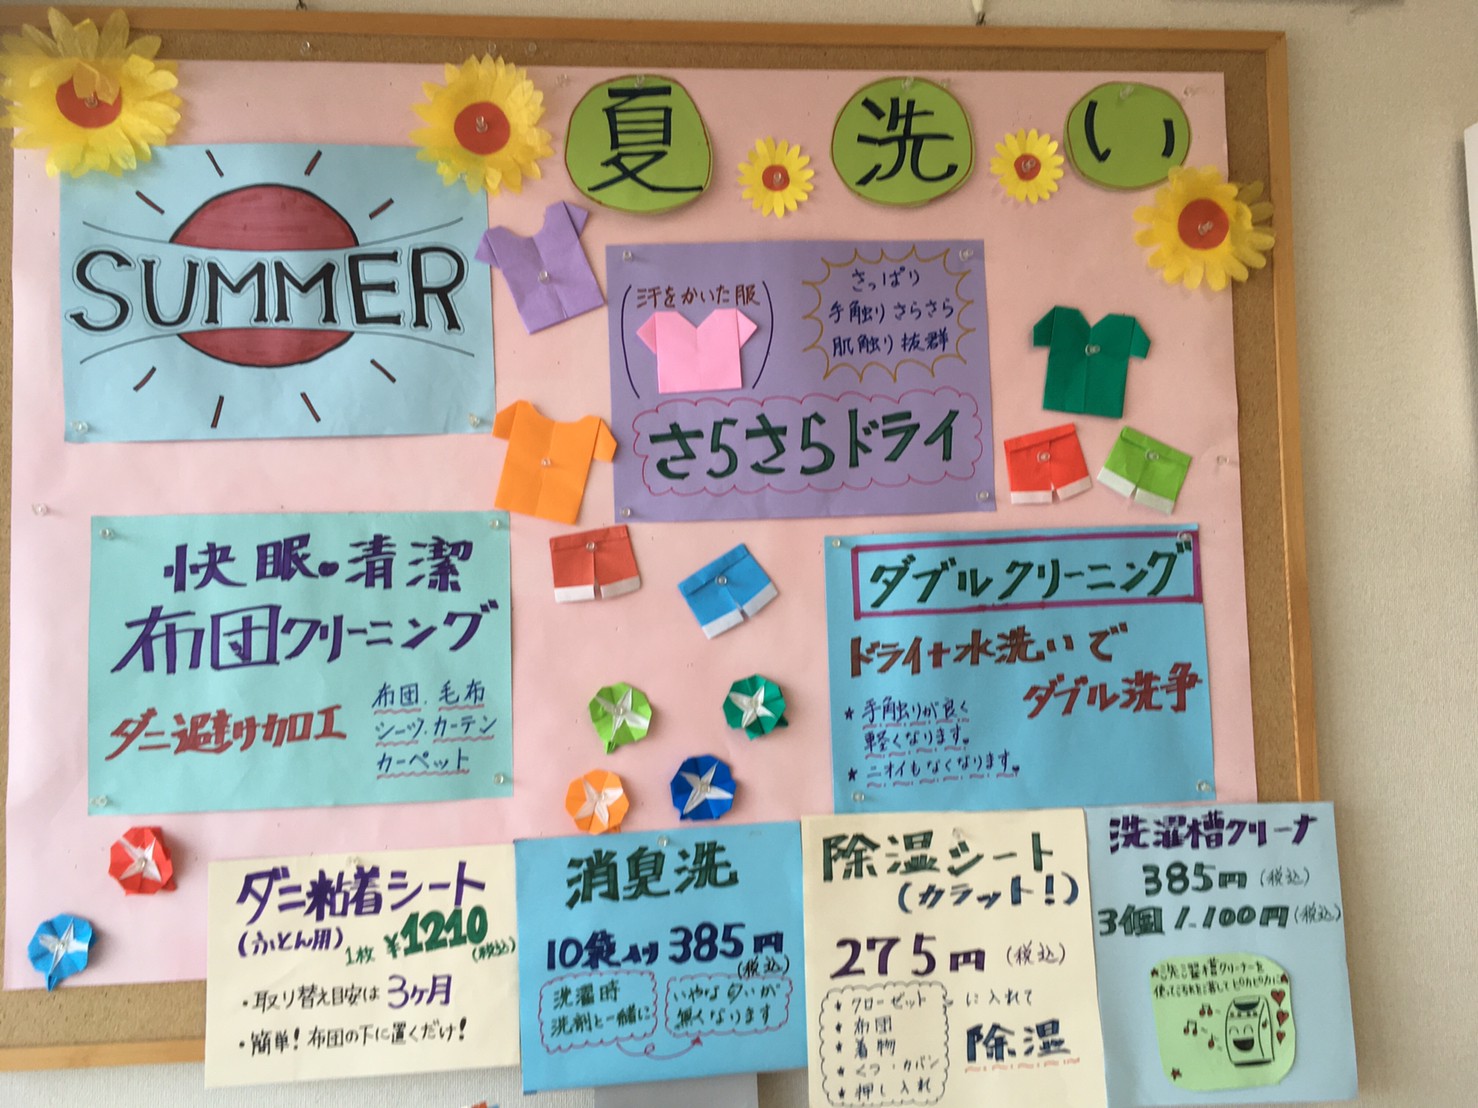 夏洗い
SUMMER
(汗をかいた服)
さっぱり
手触りさらさら
肌触り抜群
さらさらドライ
快眠・清潔
布団クリーニング
ダニ避け加工
布団.毛布
シーツ.カーテン
カーペット
ダブルクリーニング
ドライ+水洗いで
ダブル洗浄
★手触りが良く
軽くなります。
★ニオイもなくなります。
ダニ粘着シート
(ふとん用)
1枚 ¥1210
(税込)
・取り替え目安は3ヶ月
・簡単!布団の下に置くだけ!
消臭洗
10袋入り 385円
(税込)
洗濯時
洗剤と一緒に
いやな匂いが
無くなります
除湿シート
(カラット!)
275円(税込)
★クローゼット
★布団
★着物
★くつ・カバン
★押し入れ
に入れて
除湿
洗濯槽クリーナ
385円(税込)
3個 1.100円(税込)
洗濯槽クリーナーを